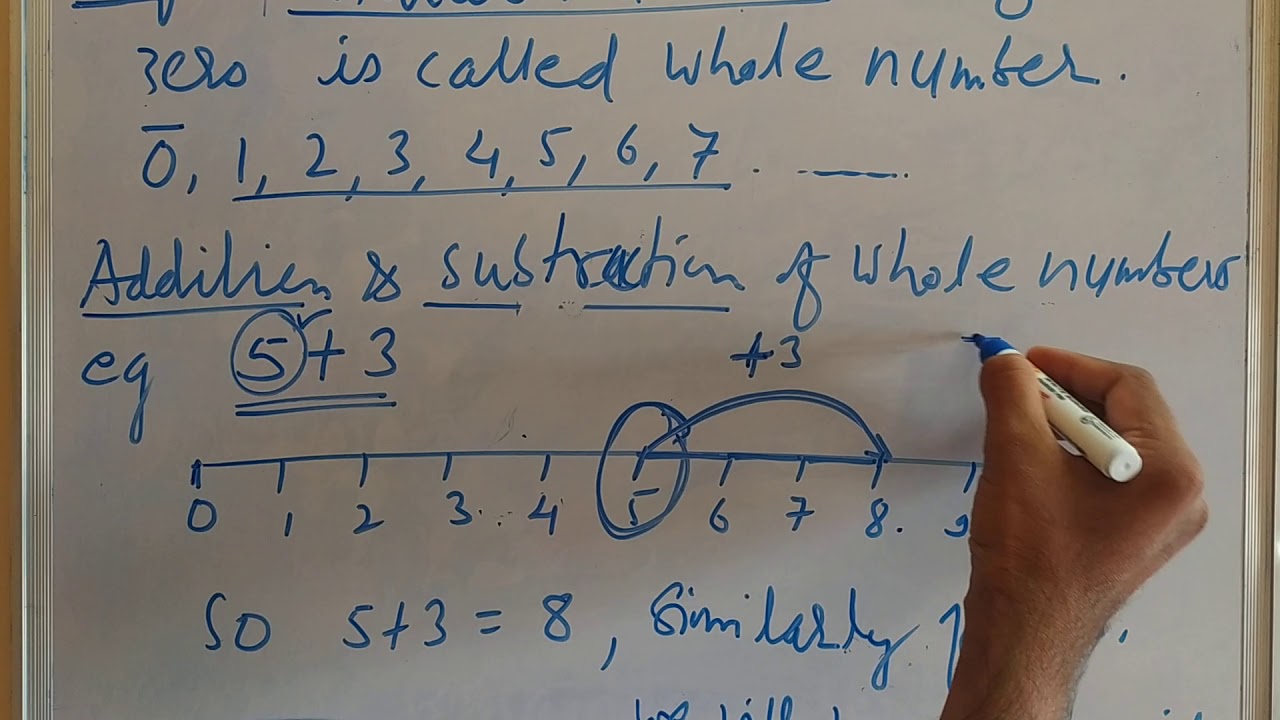 zero is called whole number.
0, 1, 2, 3, 4, 5, 6, 7 . ——.
Addition & subtraction of whole numbers
eg 5 + 3
+3
0 1 2 3 4 5 6 7 8. 9
So 5+3 = 8, Similarly